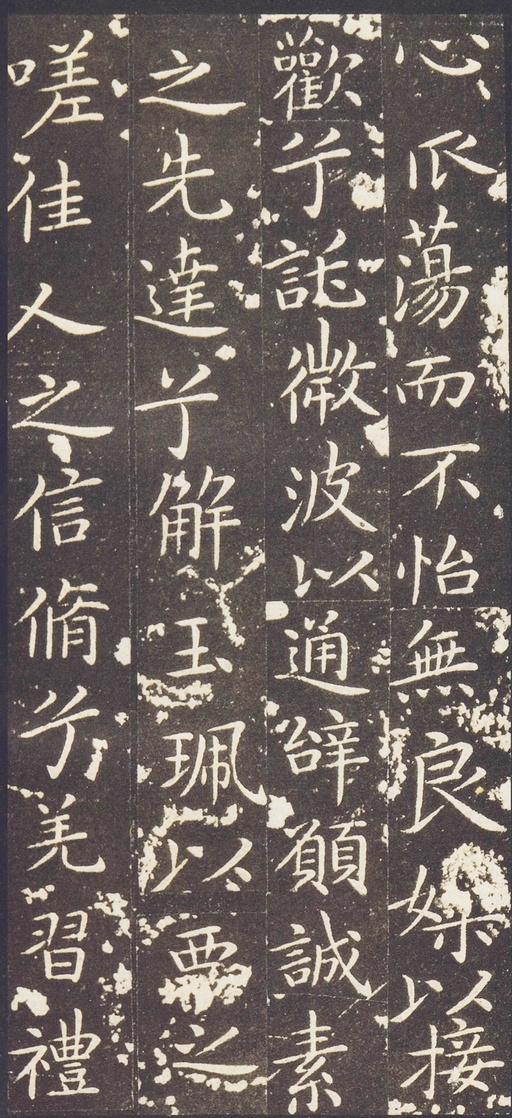 心蕩而不怡無良媒以接
歡兮託微波以通辭願誠素
之先達兮解玉珮以要之
嗟佳人之信脩兮羌習禮